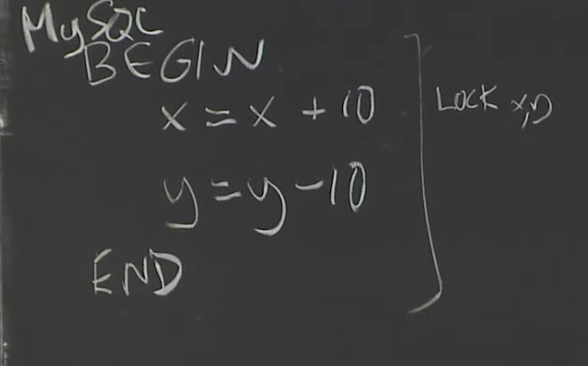 MySQL
BEGIN
x = x + 10
y = y - 10
END
LOCK x,y